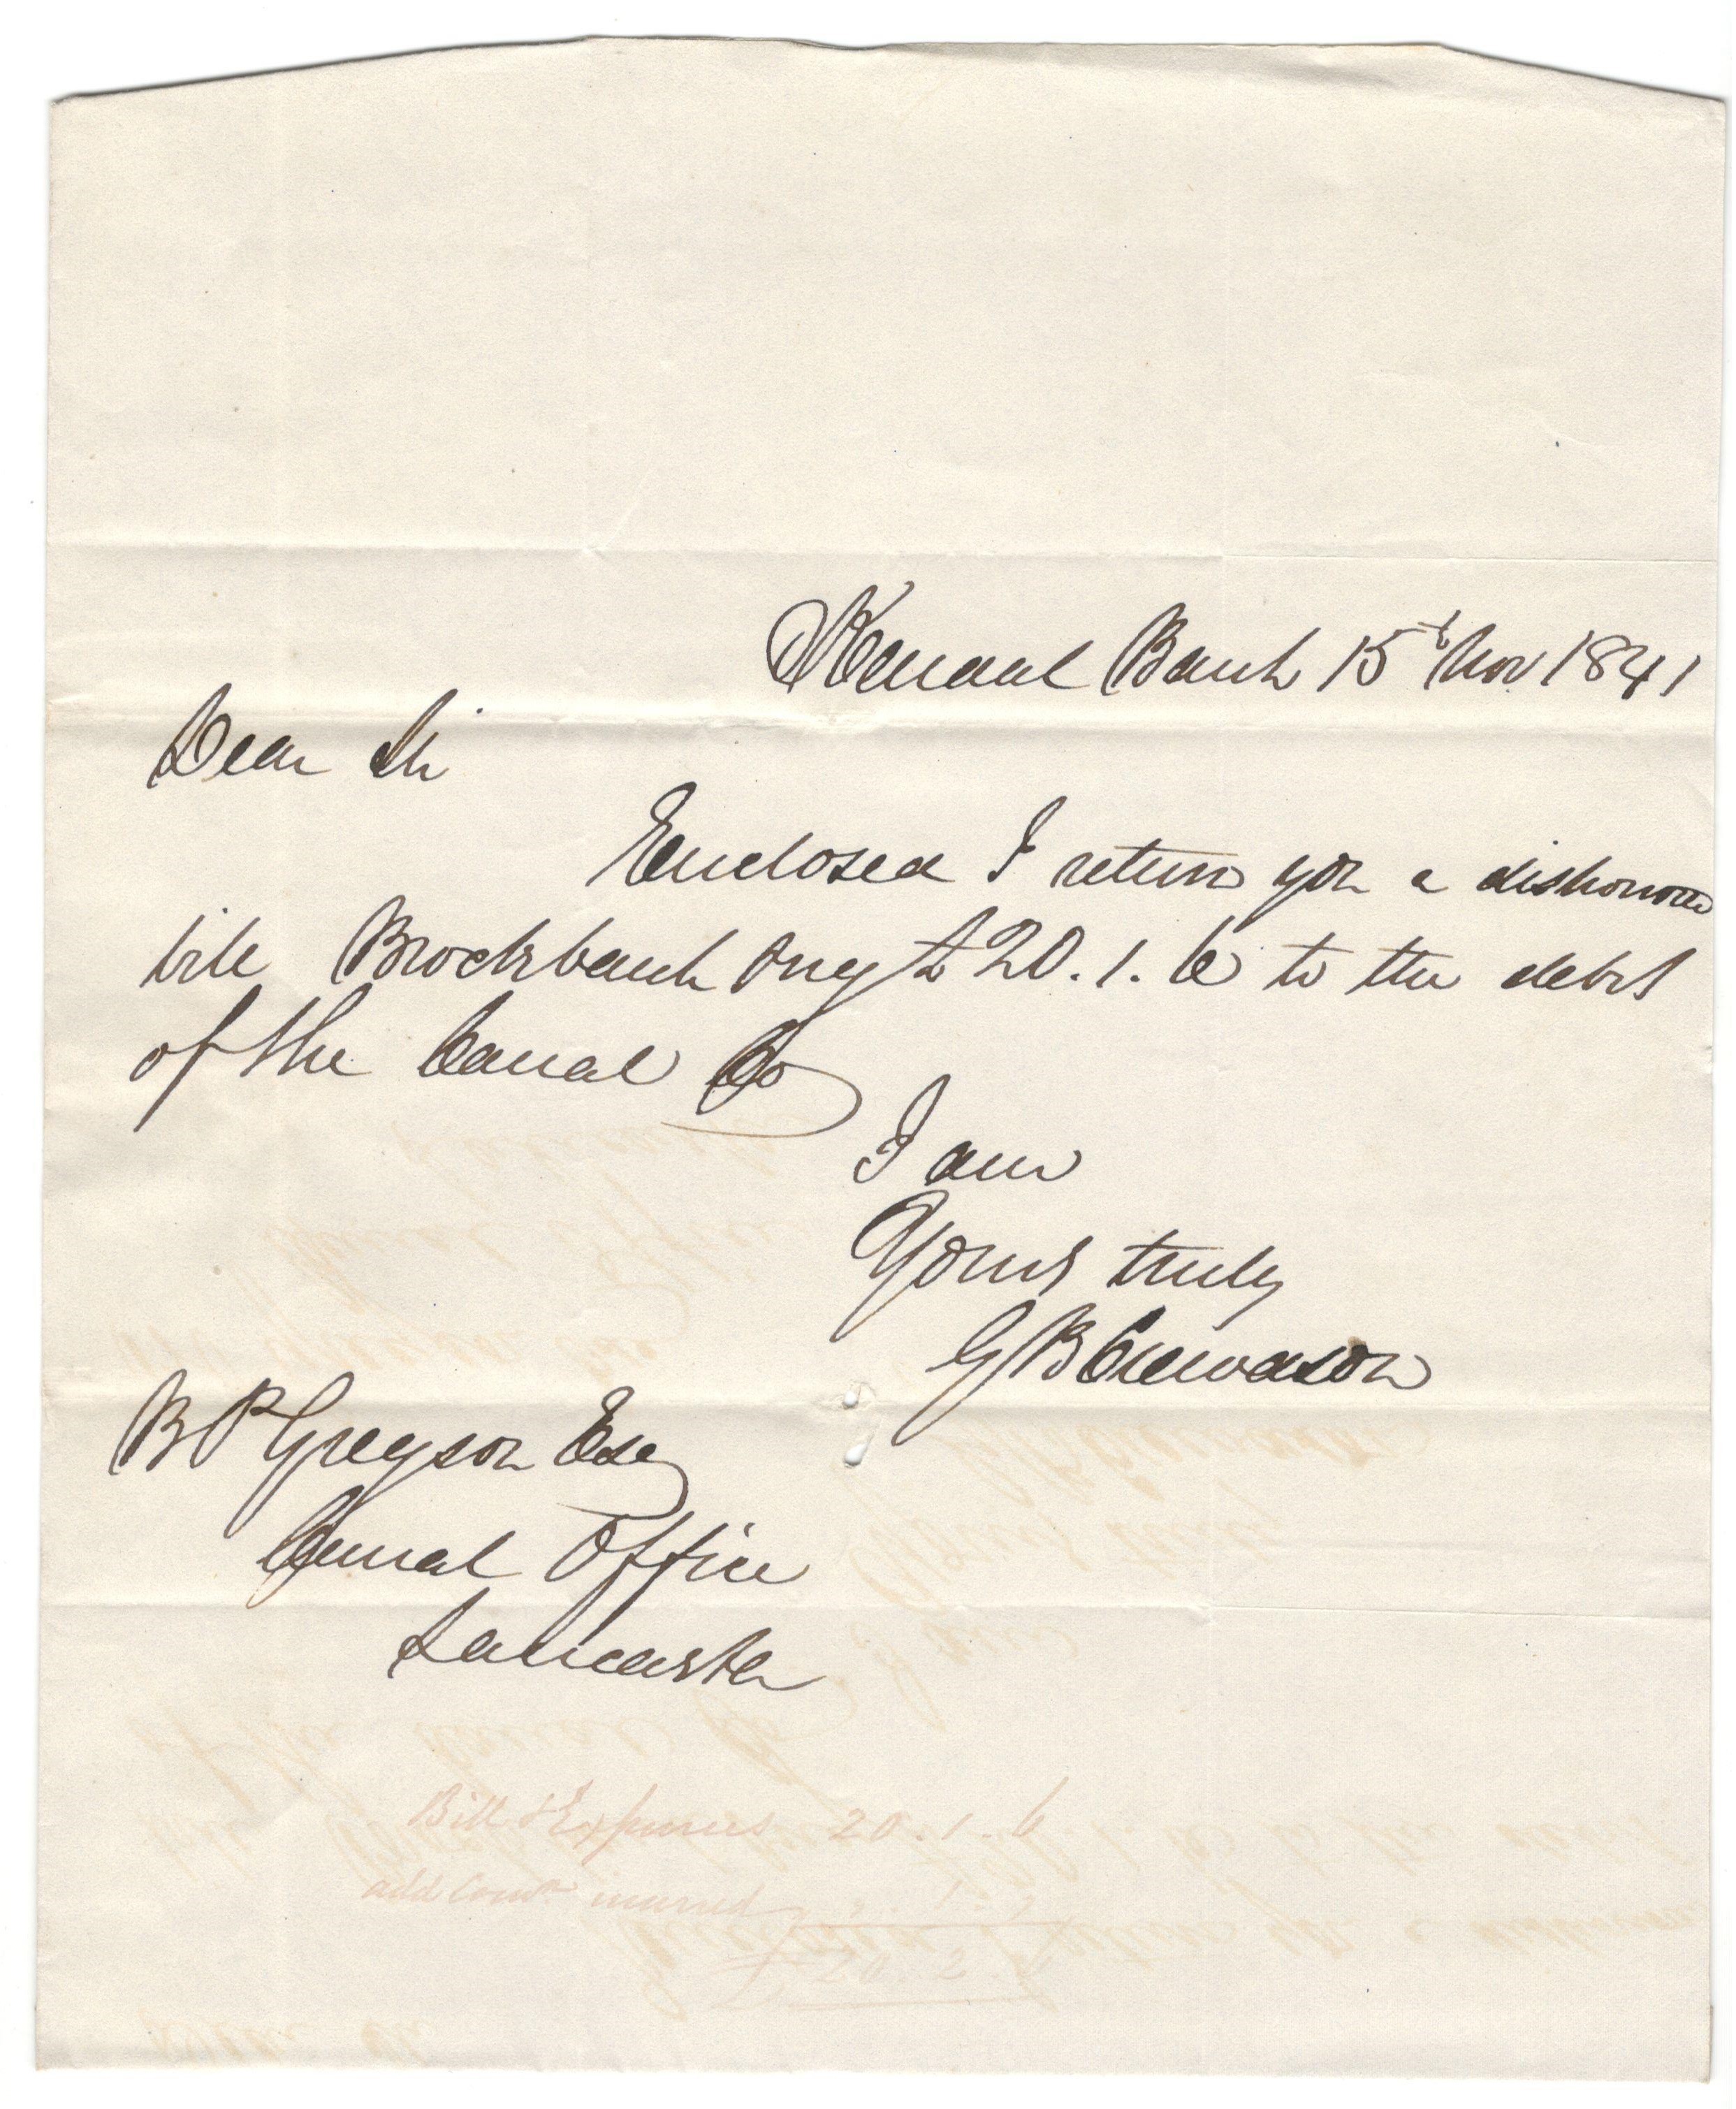 Kendal Bank 15th Nov 1841
Dear Sir
Enclosed I return you a dishonored
bill Brockbank Ong £20.1.6 to the debit
of the Canal Co
I am
Yours truly
G B Crewdson
B P Gregson Esq
Canal Office
Lancaster
Bill & Expenses 20.1.6
add incurred
20.2